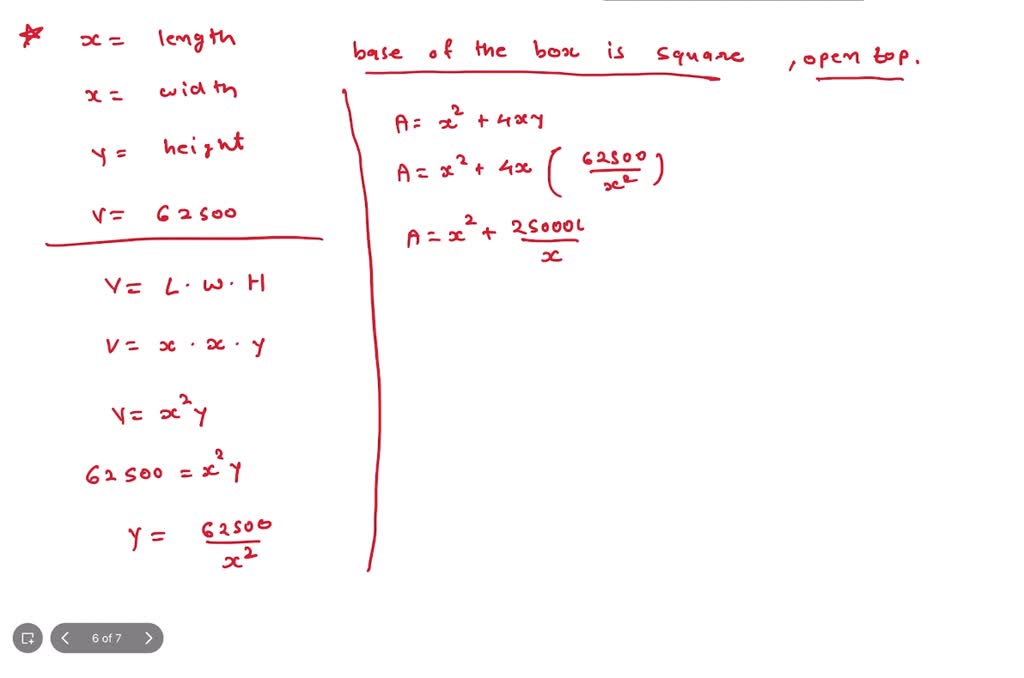 x = length
x = width
y = height
V = 62500
V = L · W · H
V = x · x · y
V = x²y
62500 = x²y
y = 62500/x²
base of the box is square , open top.
A = x² + 4xy
A = x² + 4x (62500/x²)
A = x² + 250000/x
6 of 7